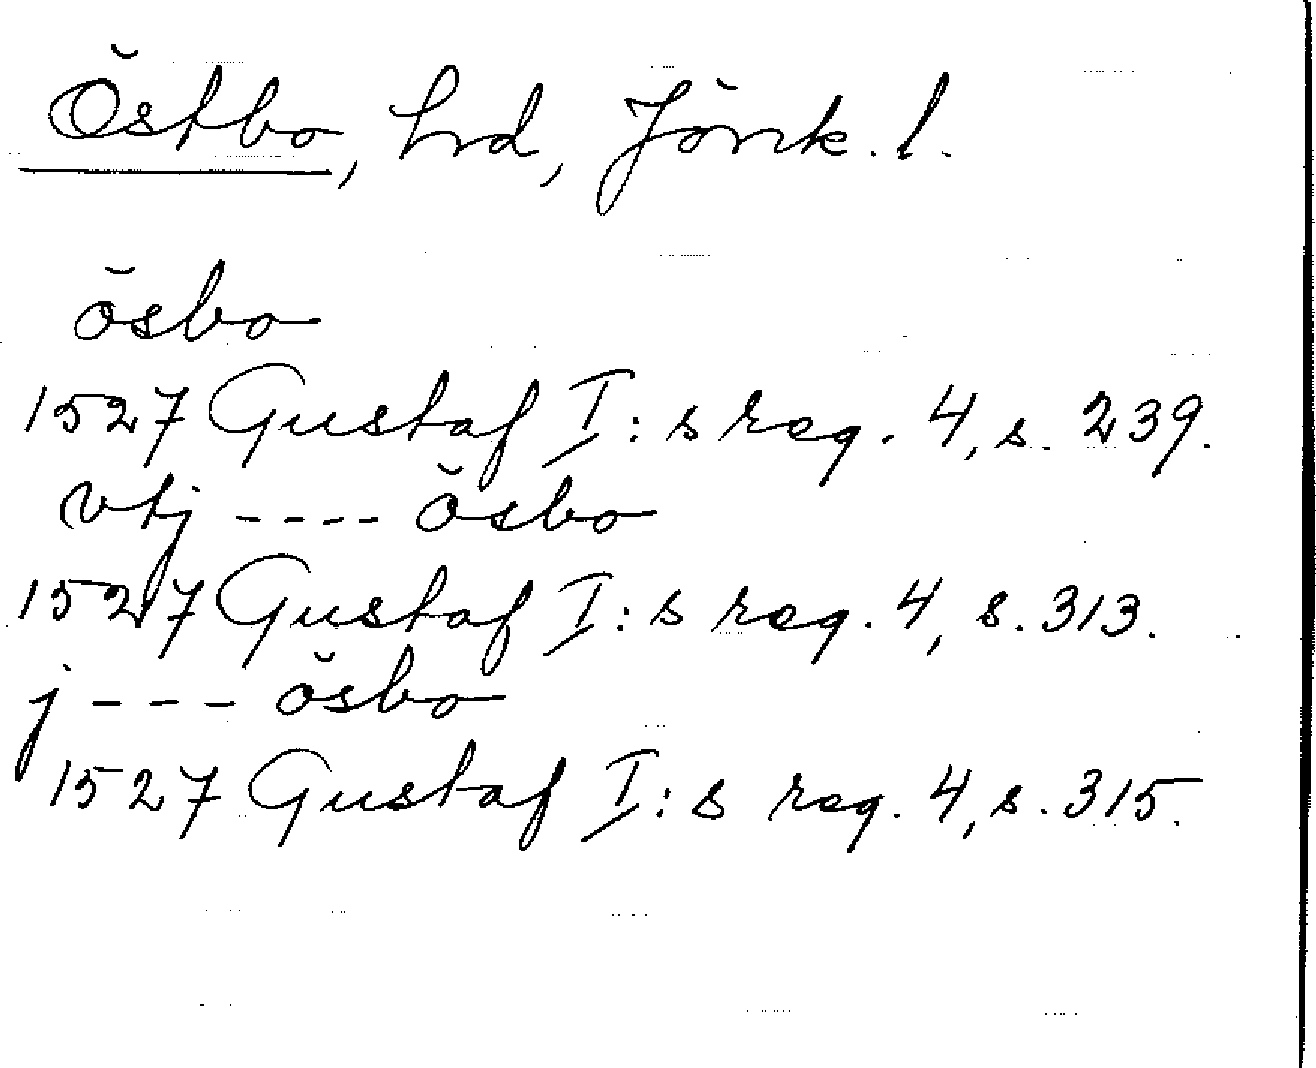 Östbo, hrd, Jönk. l.
ösbo
1527 Gustaf I:s reg. 4, s. 239.
vtj ---- Ösbo
1527 Gustaf I:s reg. 4, s. 313.
j --- ösbo
1527 Gustaf I:s reg. 4, s. 315.